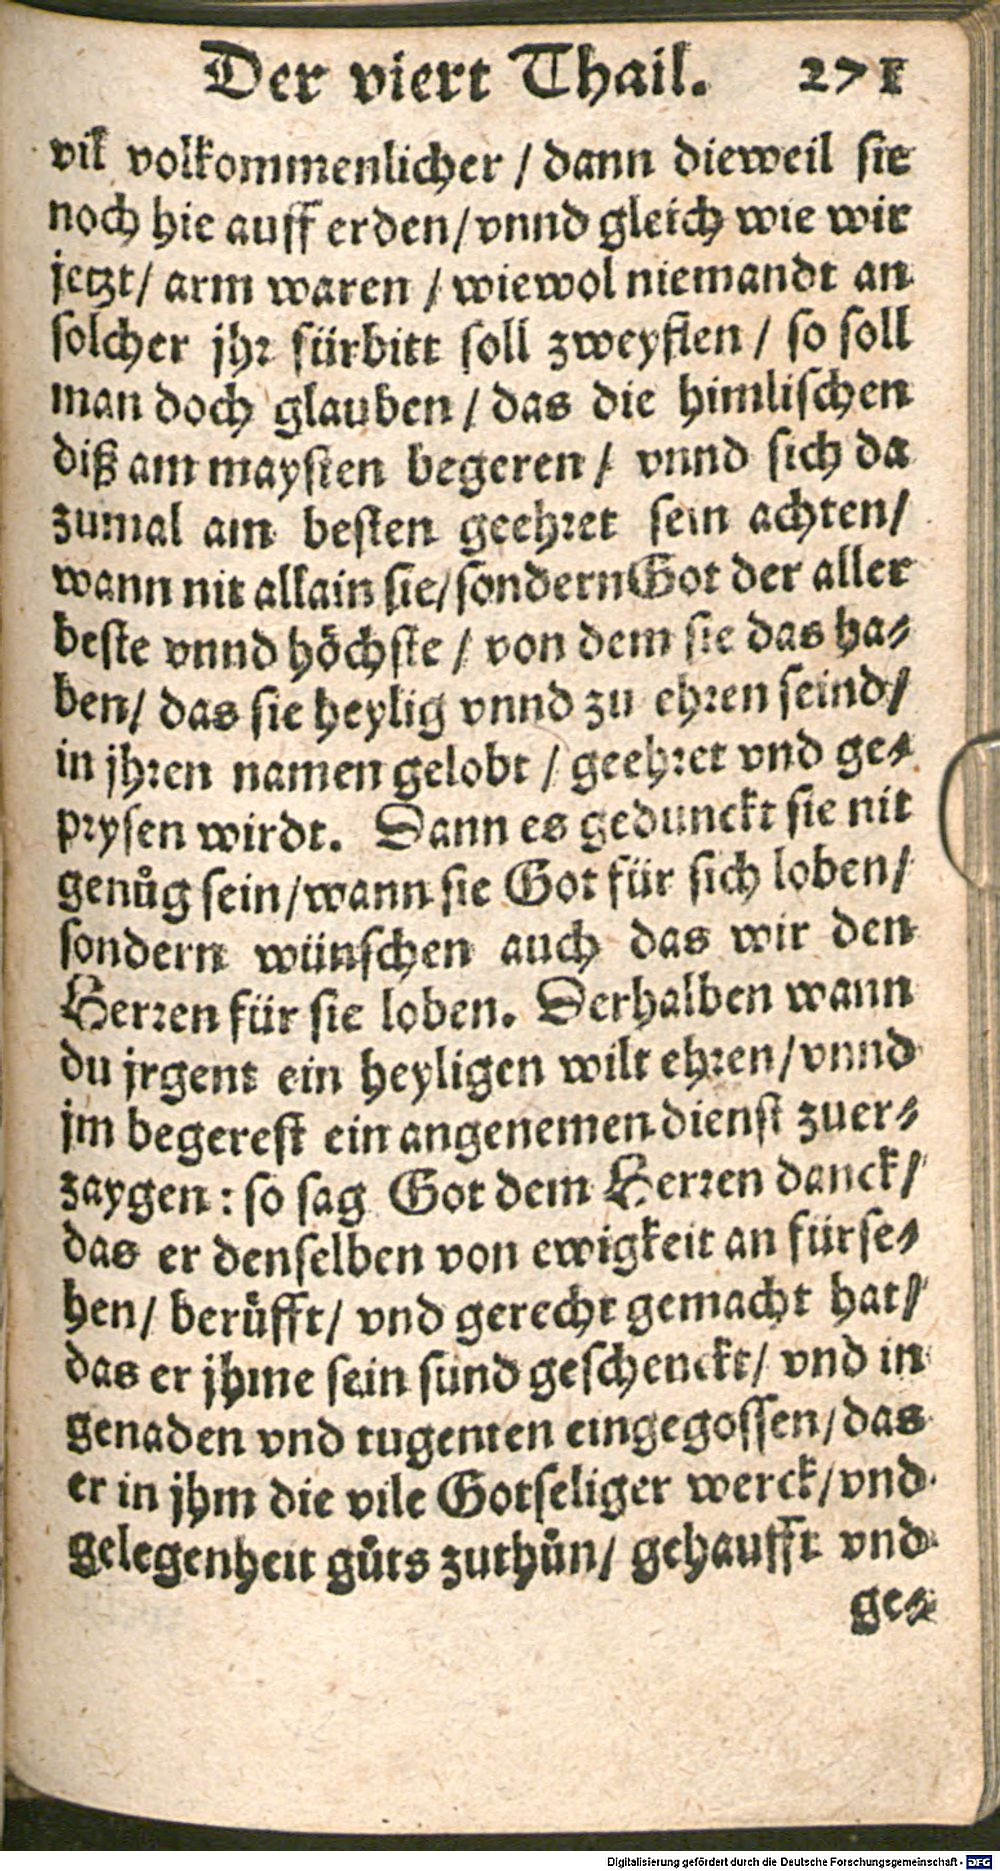 Der viert Thail. 271
vil volkommenlicher / dann dieweil sie
noch hie auff erden / vnnd gleich wie wir
jetzt / arm waren / wiewol niemandt an
solcher jhr fürbitt soll zweyflen / so soll
man doch glauben / das die himlischen
diß am maysten begeren / vnnd sich da
zumal am besten geehret sein achten /
wann nit allain sie / sondern Got der aller
beste vnnd höchste / von dem sie das ha-
ben / das sie heylig vnnd zu ehren seind /
in jhren namen gelobt / geehret vnd ge-
prysen wirdt. Dann es gedunckt sie nit
genůg sein / wann sie Got für sich loben /
sondern wünschen auch das wir den
Herren für sie loben. Derhalben wann
du jrgent ein heyligen wilt ehren / vnnd
jm begerest ein angenemen dienst zuer-
zaygen : so sag Got dem Herren danck /
das er denselben von ewigkeit an fürse-
hen / berůfft / vnd gerecht gemacht hat /
das er jhme sein sünd geschenckt / vnd in
genaden vnd tugenten eingegossen / das
er in jhm die vile Gotseliger werck / vnd
gelegenheit gůts zuthůn / gehaufft vnd
ge-
Digitalisierung gefördert durch die Deutsche Forschungsgemeinschaft - DFG